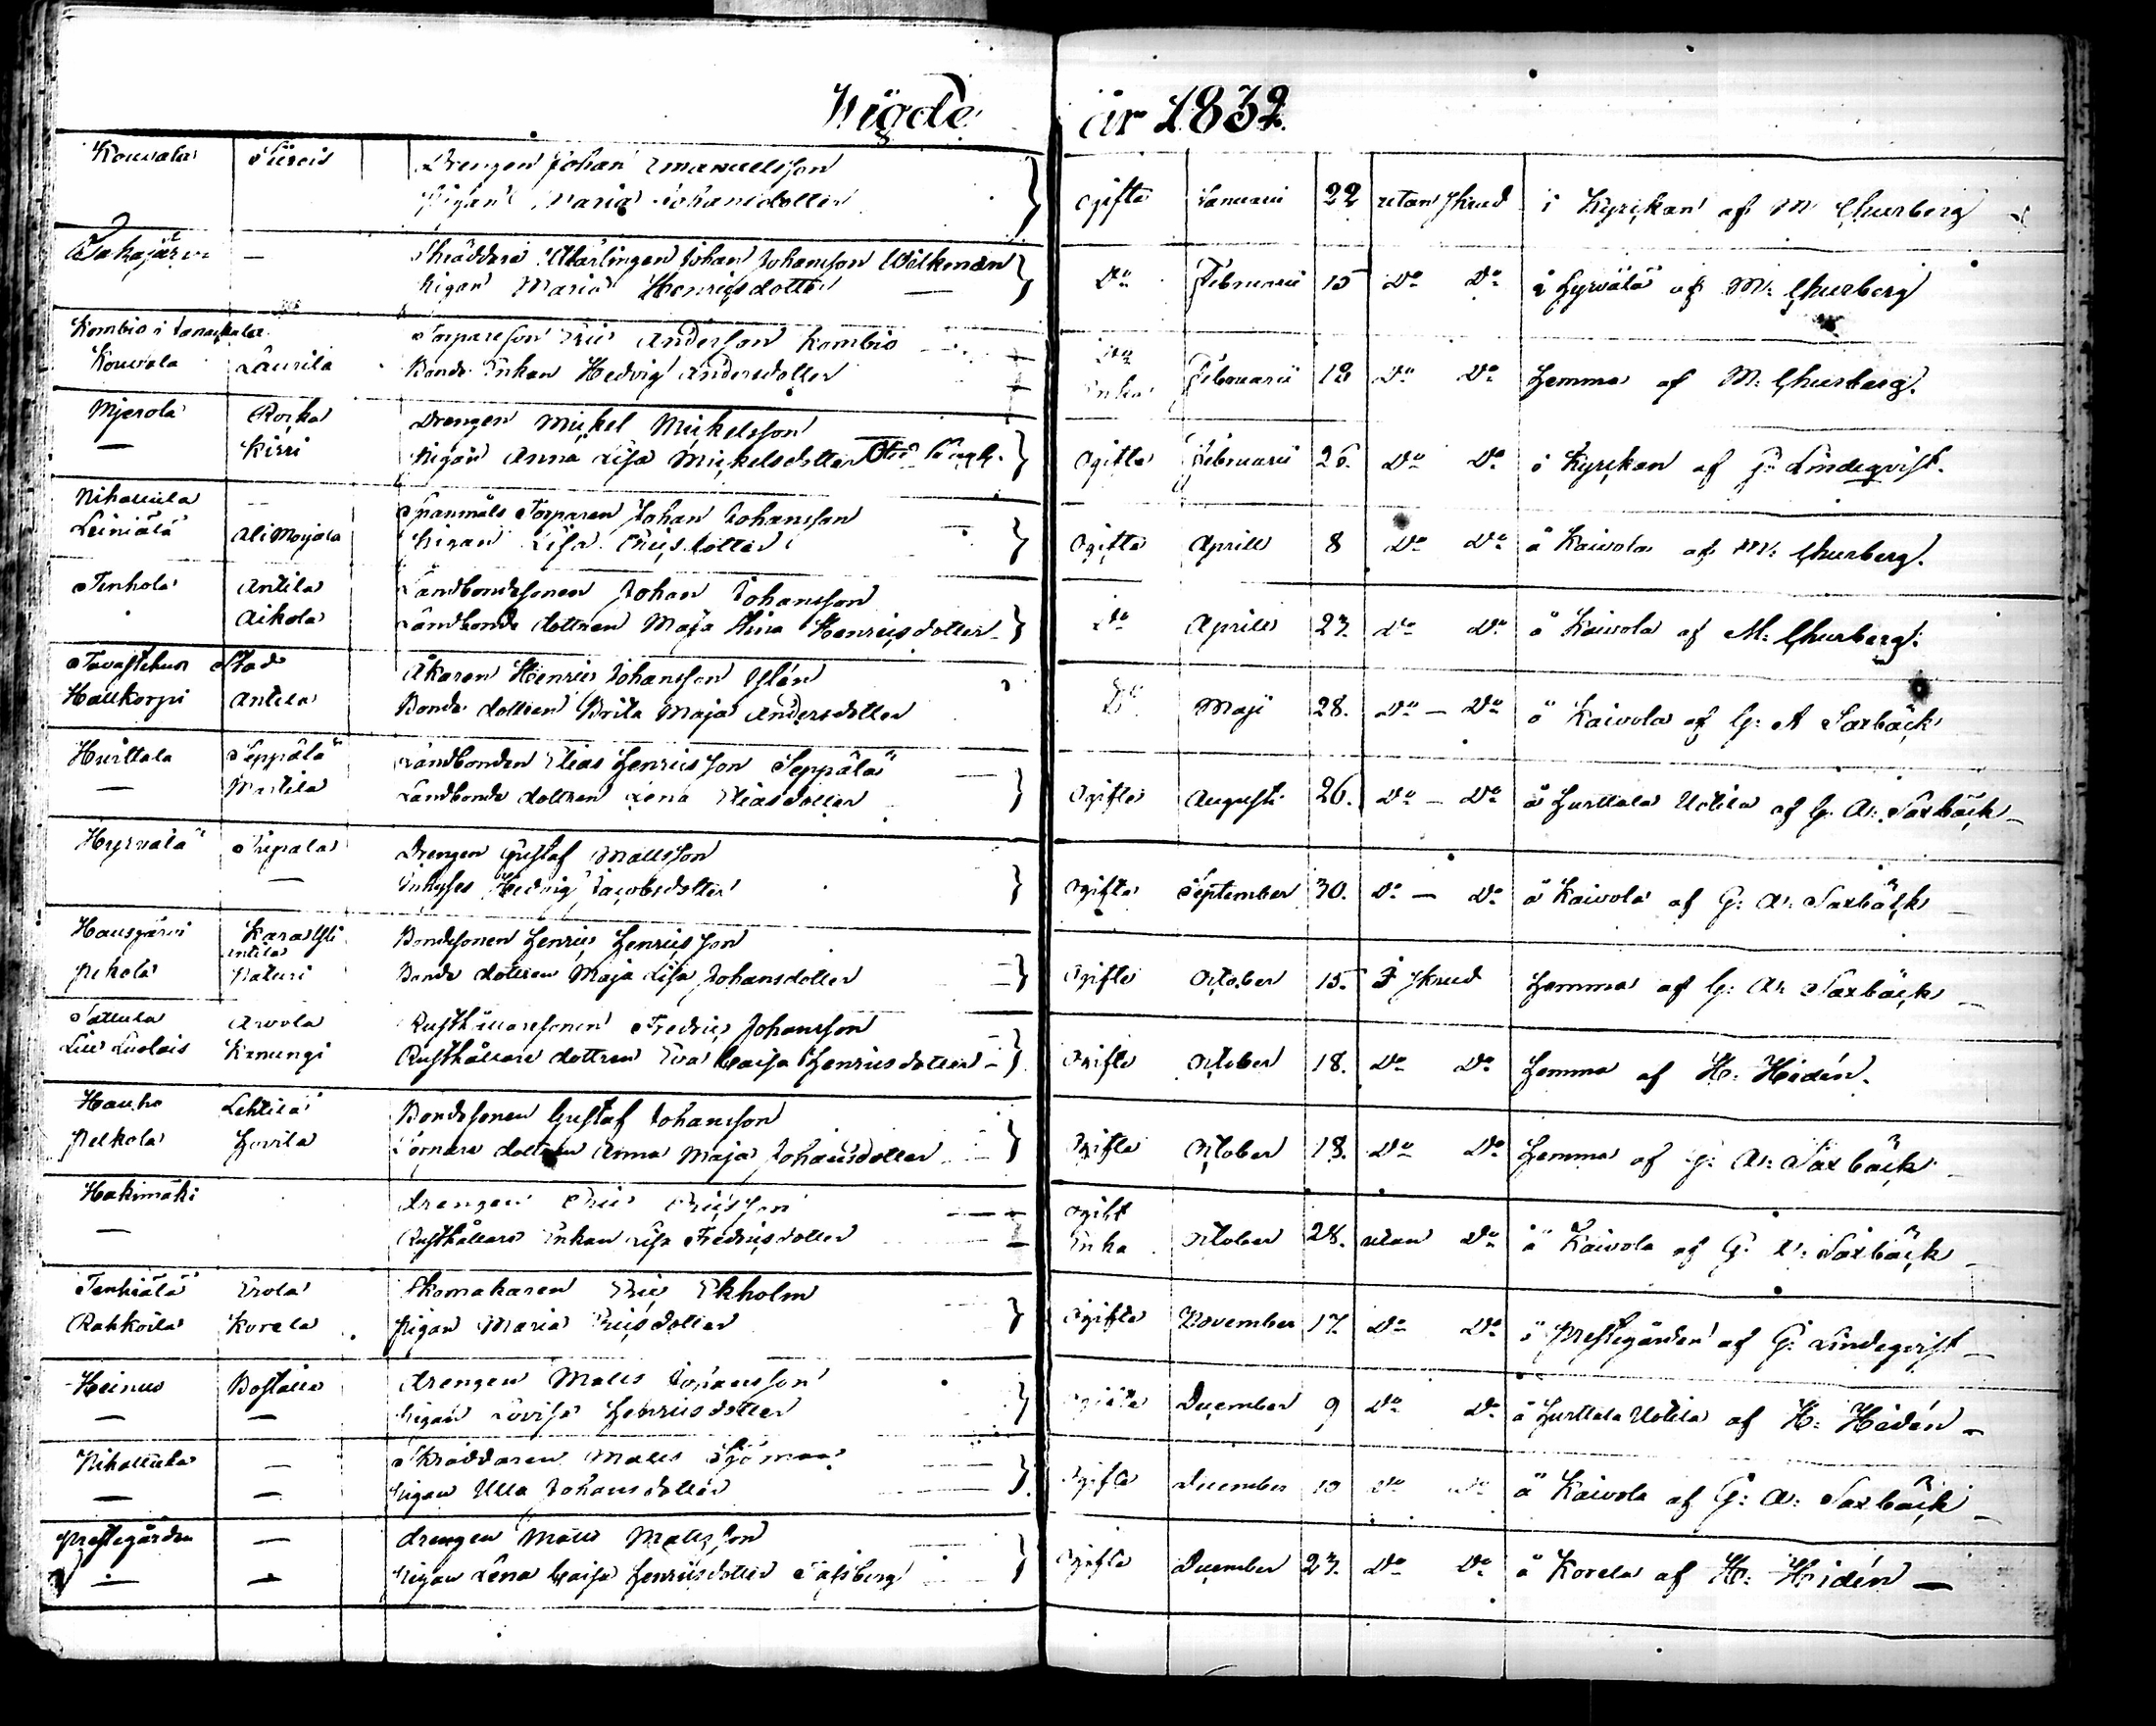 Wigde år 1832
Kouvala Drengen Johan Emanuelsson
Pigan Maria Johansdotter
ogifte Januarii 22 utan skrud i Kyrckan af M Churberg
Takajärvi — Skräddare Lärlingen Johan Johansson Wilkman
Pigan Maria Henricsdotter —
Do Februarii 15 Do Do å Hyrvälä af M: Churberg
Kombio i Janackala Torparesson Eric Andersson Kombio
Kouvala Laurila Bonde Enkan Hedvig Andersdotter
Do Enka Februarii 18 Do Do Hemma af M: Churberg.
Mjerola Drengen Mickel Mickelsson
— Kirri Pigan Anna Lisa Mickelsdotter
Ogifta Februarii 26. Do Do i Kyrckan af G: Lindeqvist.
Nihattula — Spanmåls Torparen Johan Johansson
Leiniälä Ali Moijala Pigan Lisa Ericsdotter
Ogifta Aprill 8 Do Do å Kaivola af M: Churberg.
Tenhola Antila Landbondesonen Johan Johansson
Aikola Landbonde dottren Maja Stina Henricsdotter
Do Aprill 23. Do Do å Kaivola af M: Churberg.
Tavastehus Stad Åkaren Henric Johansson
Hattkorpi Antila Bonde dottren Brita Maja Andersdotter
Do Maji 28. Do — Do å Kaivola af G: A Saxbäck
Hurttala Seppälä Landbonden Elias Henricsson Seppälä —
— Martila Landbonde dottren Lena Eliasdotter
Ogifte Augusti 26. Do — Do å Hurttala Uotila af G. A: Saxbäck —
Hyrvälä Drengen Gustaf Mattsson
— Inhyses Hedvig Jacobsdotter
ogifta September 30. Do — Do å Kaivola af G: A: Saxbäck —
Hausjärvi Kara Bondesonen Henric Henricsson
Pekola Naturi Bonde dottren Maja Lisa Johansdotter
ogifte October 15. I skrud Hemma af G: A: Saxbäck —
Sattula Arvola Rusthållaresonen Fredric Johansson
Lill Luolais Kenungi Rusthållare dottren Eva Caisa Henricsdotter —
ogifte October 18. Do Do Hemma af H: Hedén.
Hauho Lehtilä Bondesonen Gustaf Johansson
Pelkola Hovila dottren Anna Maja Johansdotter
Ogifte October 18. Do Do Hemma af G: A: Saxbäck —
Hakimäki drengen Eric Ericsson
— Rusthållare Enkan Lisa Fredricsdotter
ogift Enka October 28. utan Do å Kaivola af G: A: Saxbäck —
Tenhiälä Erola Skomakaren Eric Ekholm
Rahkoila Korela Pigan Maria Ericsdotter
Ogifte November 17. Do Do i Prestegården af G: Lindeqvist —
Heinus Boställe drengen Matts Johansson
— — Pigan Lovisa Henricsdotter
Ogifta December 9 Do Do å Hurttala Uotila af H: Hedén —
Nihattula — Skräddaren Matts Sjöman
— — Pigan Ulla Johansdotter
Ogifte December Do Do å Kaivola af G: A: Saxbäck —
Prestegården — drengen Matts Mattsson
— — Pigan Lena Caisa Henricsdotter
Ogifte December 23. Do Do å Korela af H: Hedén —